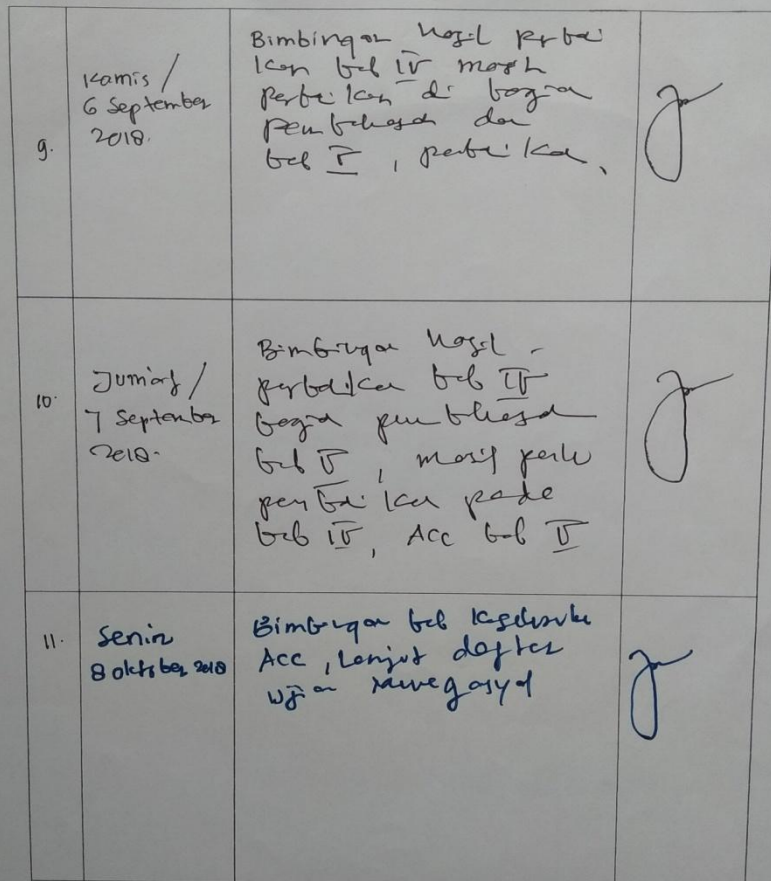 9.
Kamis /
6 September
2018.
Bimbingan hasil perbai
kan bab IV masih
perbaikan di bagian
pembahasan dan
bab V, perbaikan.
10.
Jumat /
7 September
2018.
Bimbingan hasil -
perbaikan bab IV
bagian pembahasan
bab V, masih perlu
perbaikan pada
bab IV, Acc bab V
11.
Senin
8 oktober 2018
Bimbingan bab
Acc, Lanjut daftar
ujian munaqasyah